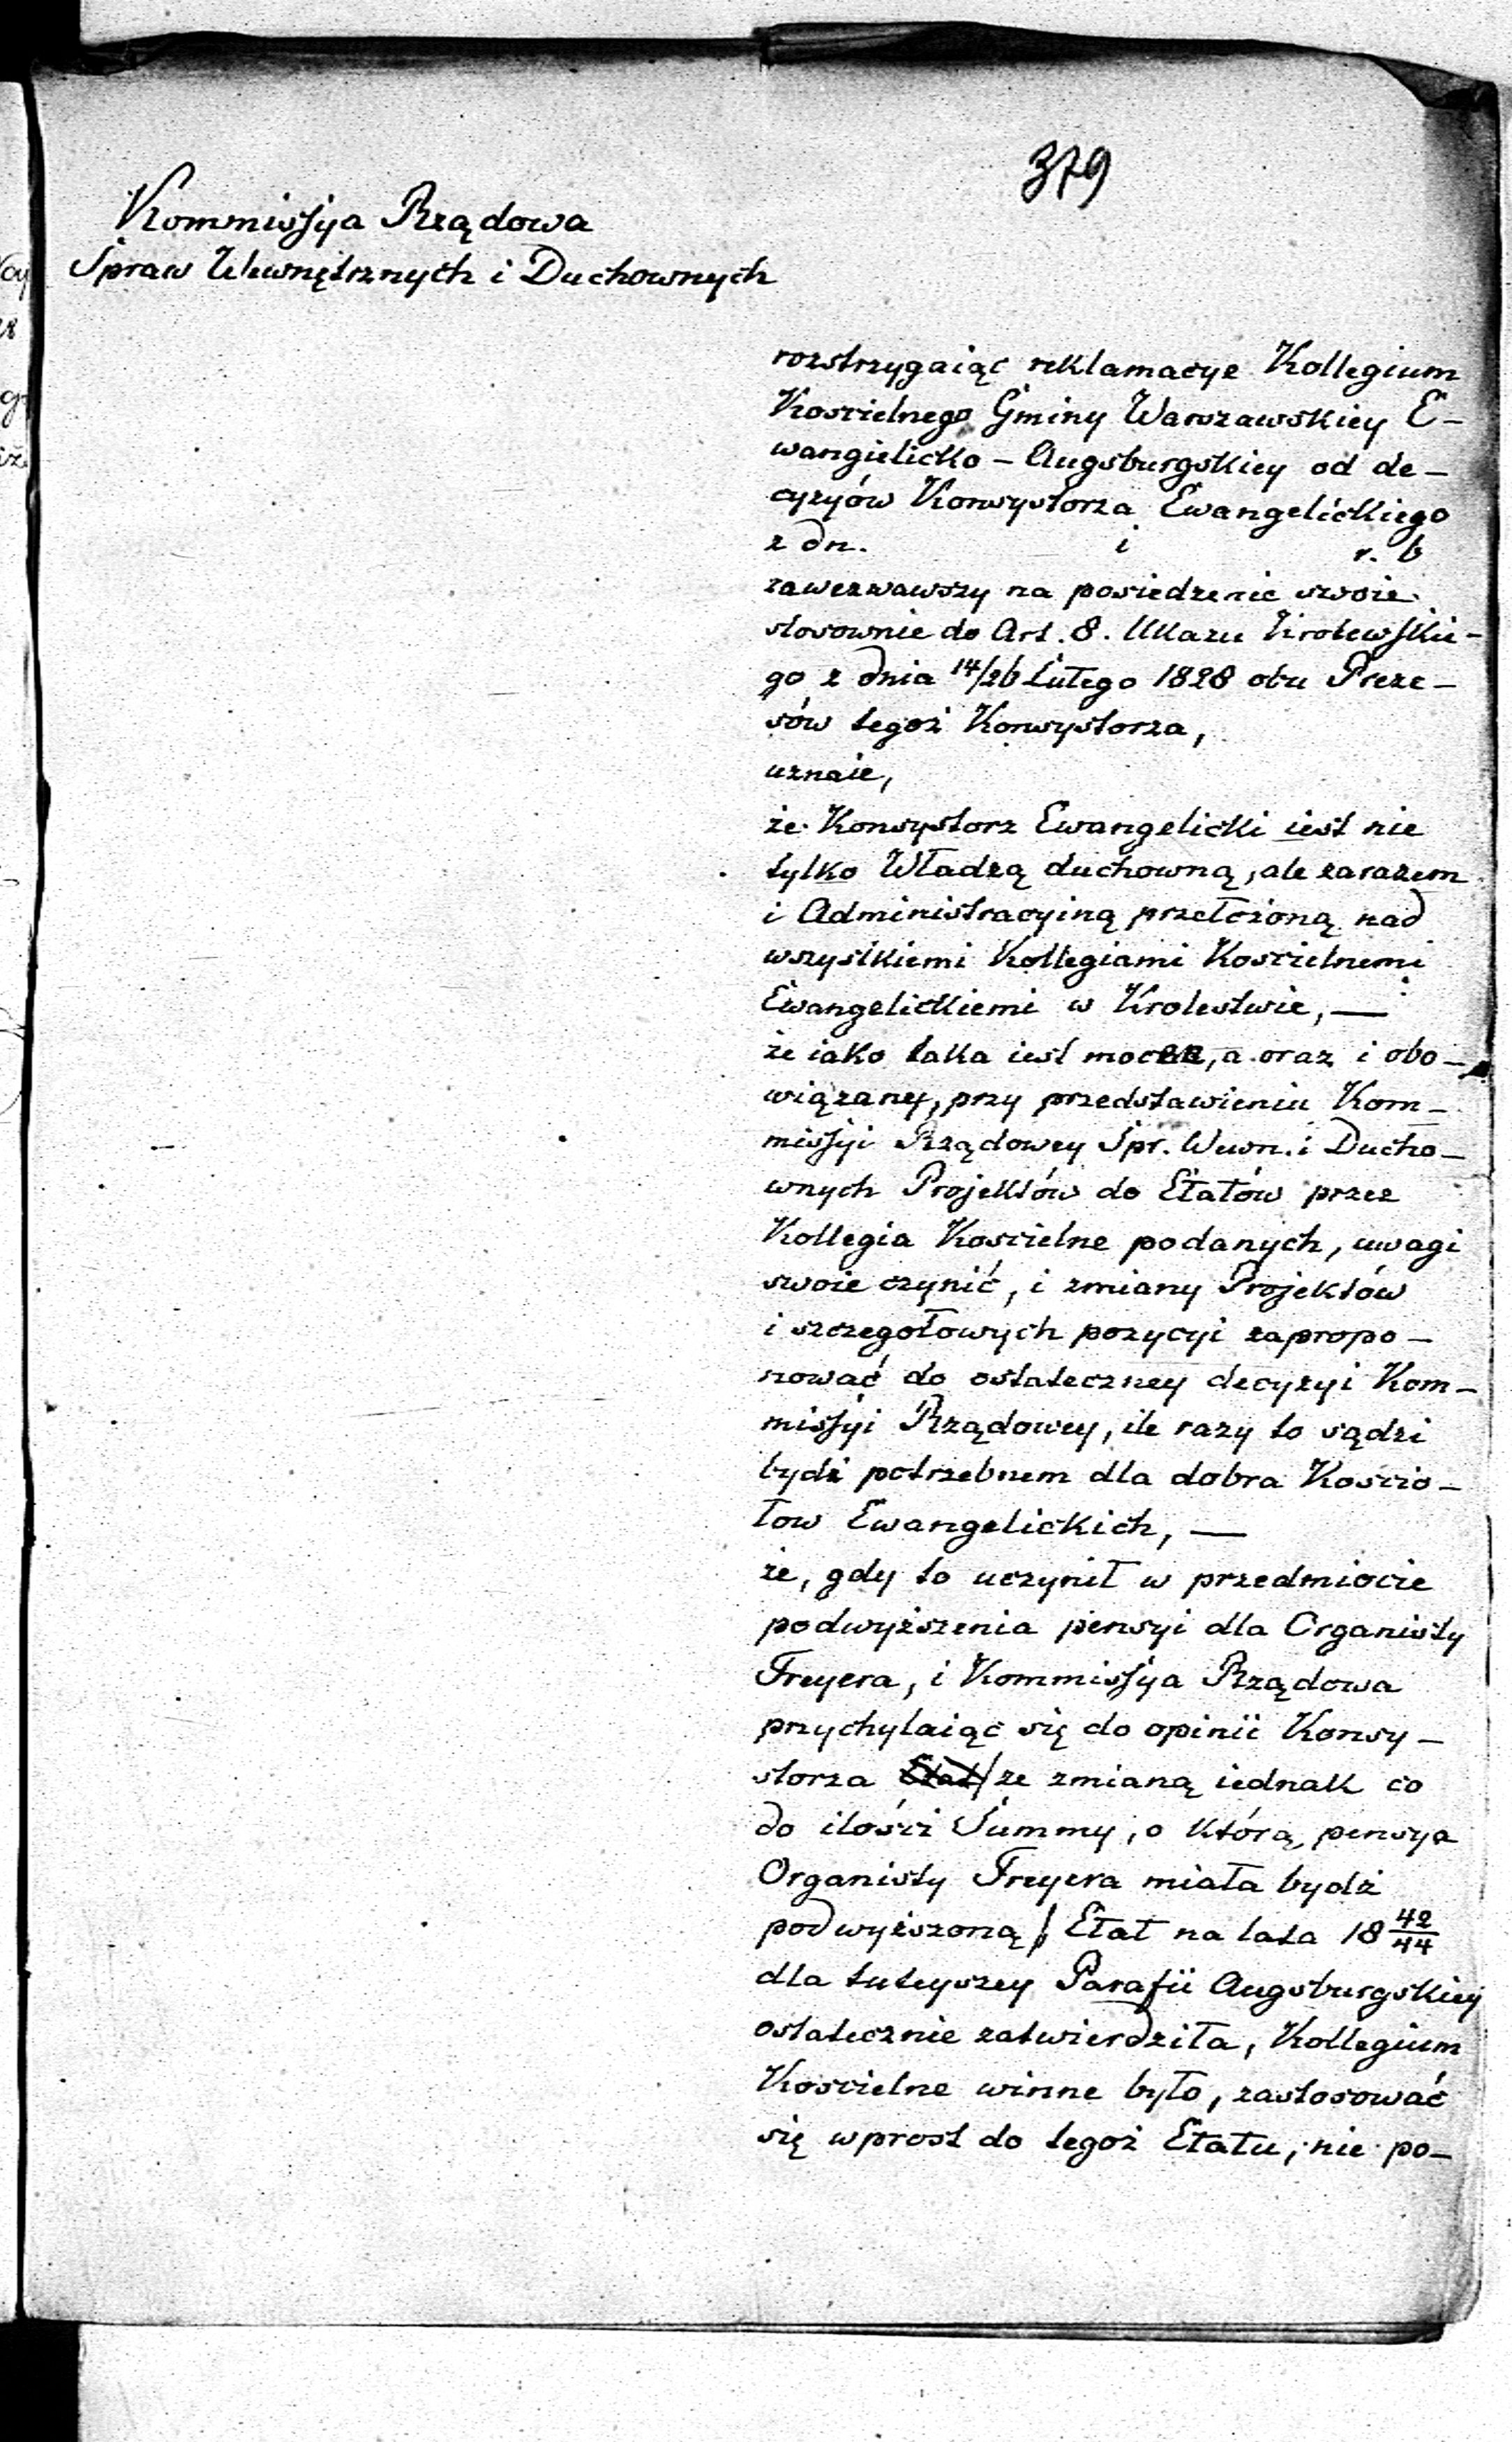 379
Kommissyia Rządowa
Spraw Wewnętrznych i Duchownych
rozstrzygaiąc reklamacye Kollegium
Koscielnego Gminy Warszawskiey E-
wangielicko - Augsburgskiey od de-
cyzyów Konsystorza Ewangelickiego
z dn. i r. b
zawezwawszy na posiedzenie swoie
stosownie do Art. 8. Ukazu Krolewskie-
go z dnia 14/26 Lutego 1828 obu Preze-
sów tegoż Konsystorza,
uznaie,
że Konsystorz Ewangelicki iest nie
tylko Władzą duchowną, ale zarazem
i Administracyiną przełożoną nad
wszystkiemi Kollegiami Koscielnemi
Ewangelickiemi w Krolestwie, —
że iako taka iest mocen, a oraz i obo-
wiązany, przy przedstawieniu Kom-
missyi Rządowey Spr. Wewn. i Ducho-
wnych Projektów do Etatów przez
Kollegia Koscielne podanych, uwagi
swoie czynić, i zmiany Projektów
i szczegołowych pozycyi zapropo-
nować do ostateczney decyzyi Kom-
missyi Rządowey, ile razy to sądzi
bydź potrzebnem dla dobra Koscio-
łow Ewangelickich, —
że, gdy to uczynił w przedmiocie
podwyższenia pensyi dla Organisty
Freyera, i Kommissyia Rządowa
przychylaiąc się do opinii Konsy-
storza Etat /ze zmianą iednak co
do ilości Summy, o którą, pensya
Organisty Freyera miała bydź
podwyższoną/ Etat na lata 18 42/44
dla tuteyszey Parafii Augsburgskiey
ostatecznie zatwierdziła, Kollegium
Koscielne winne było, zastosować
się wprost do tegoż Etatu, nie po-